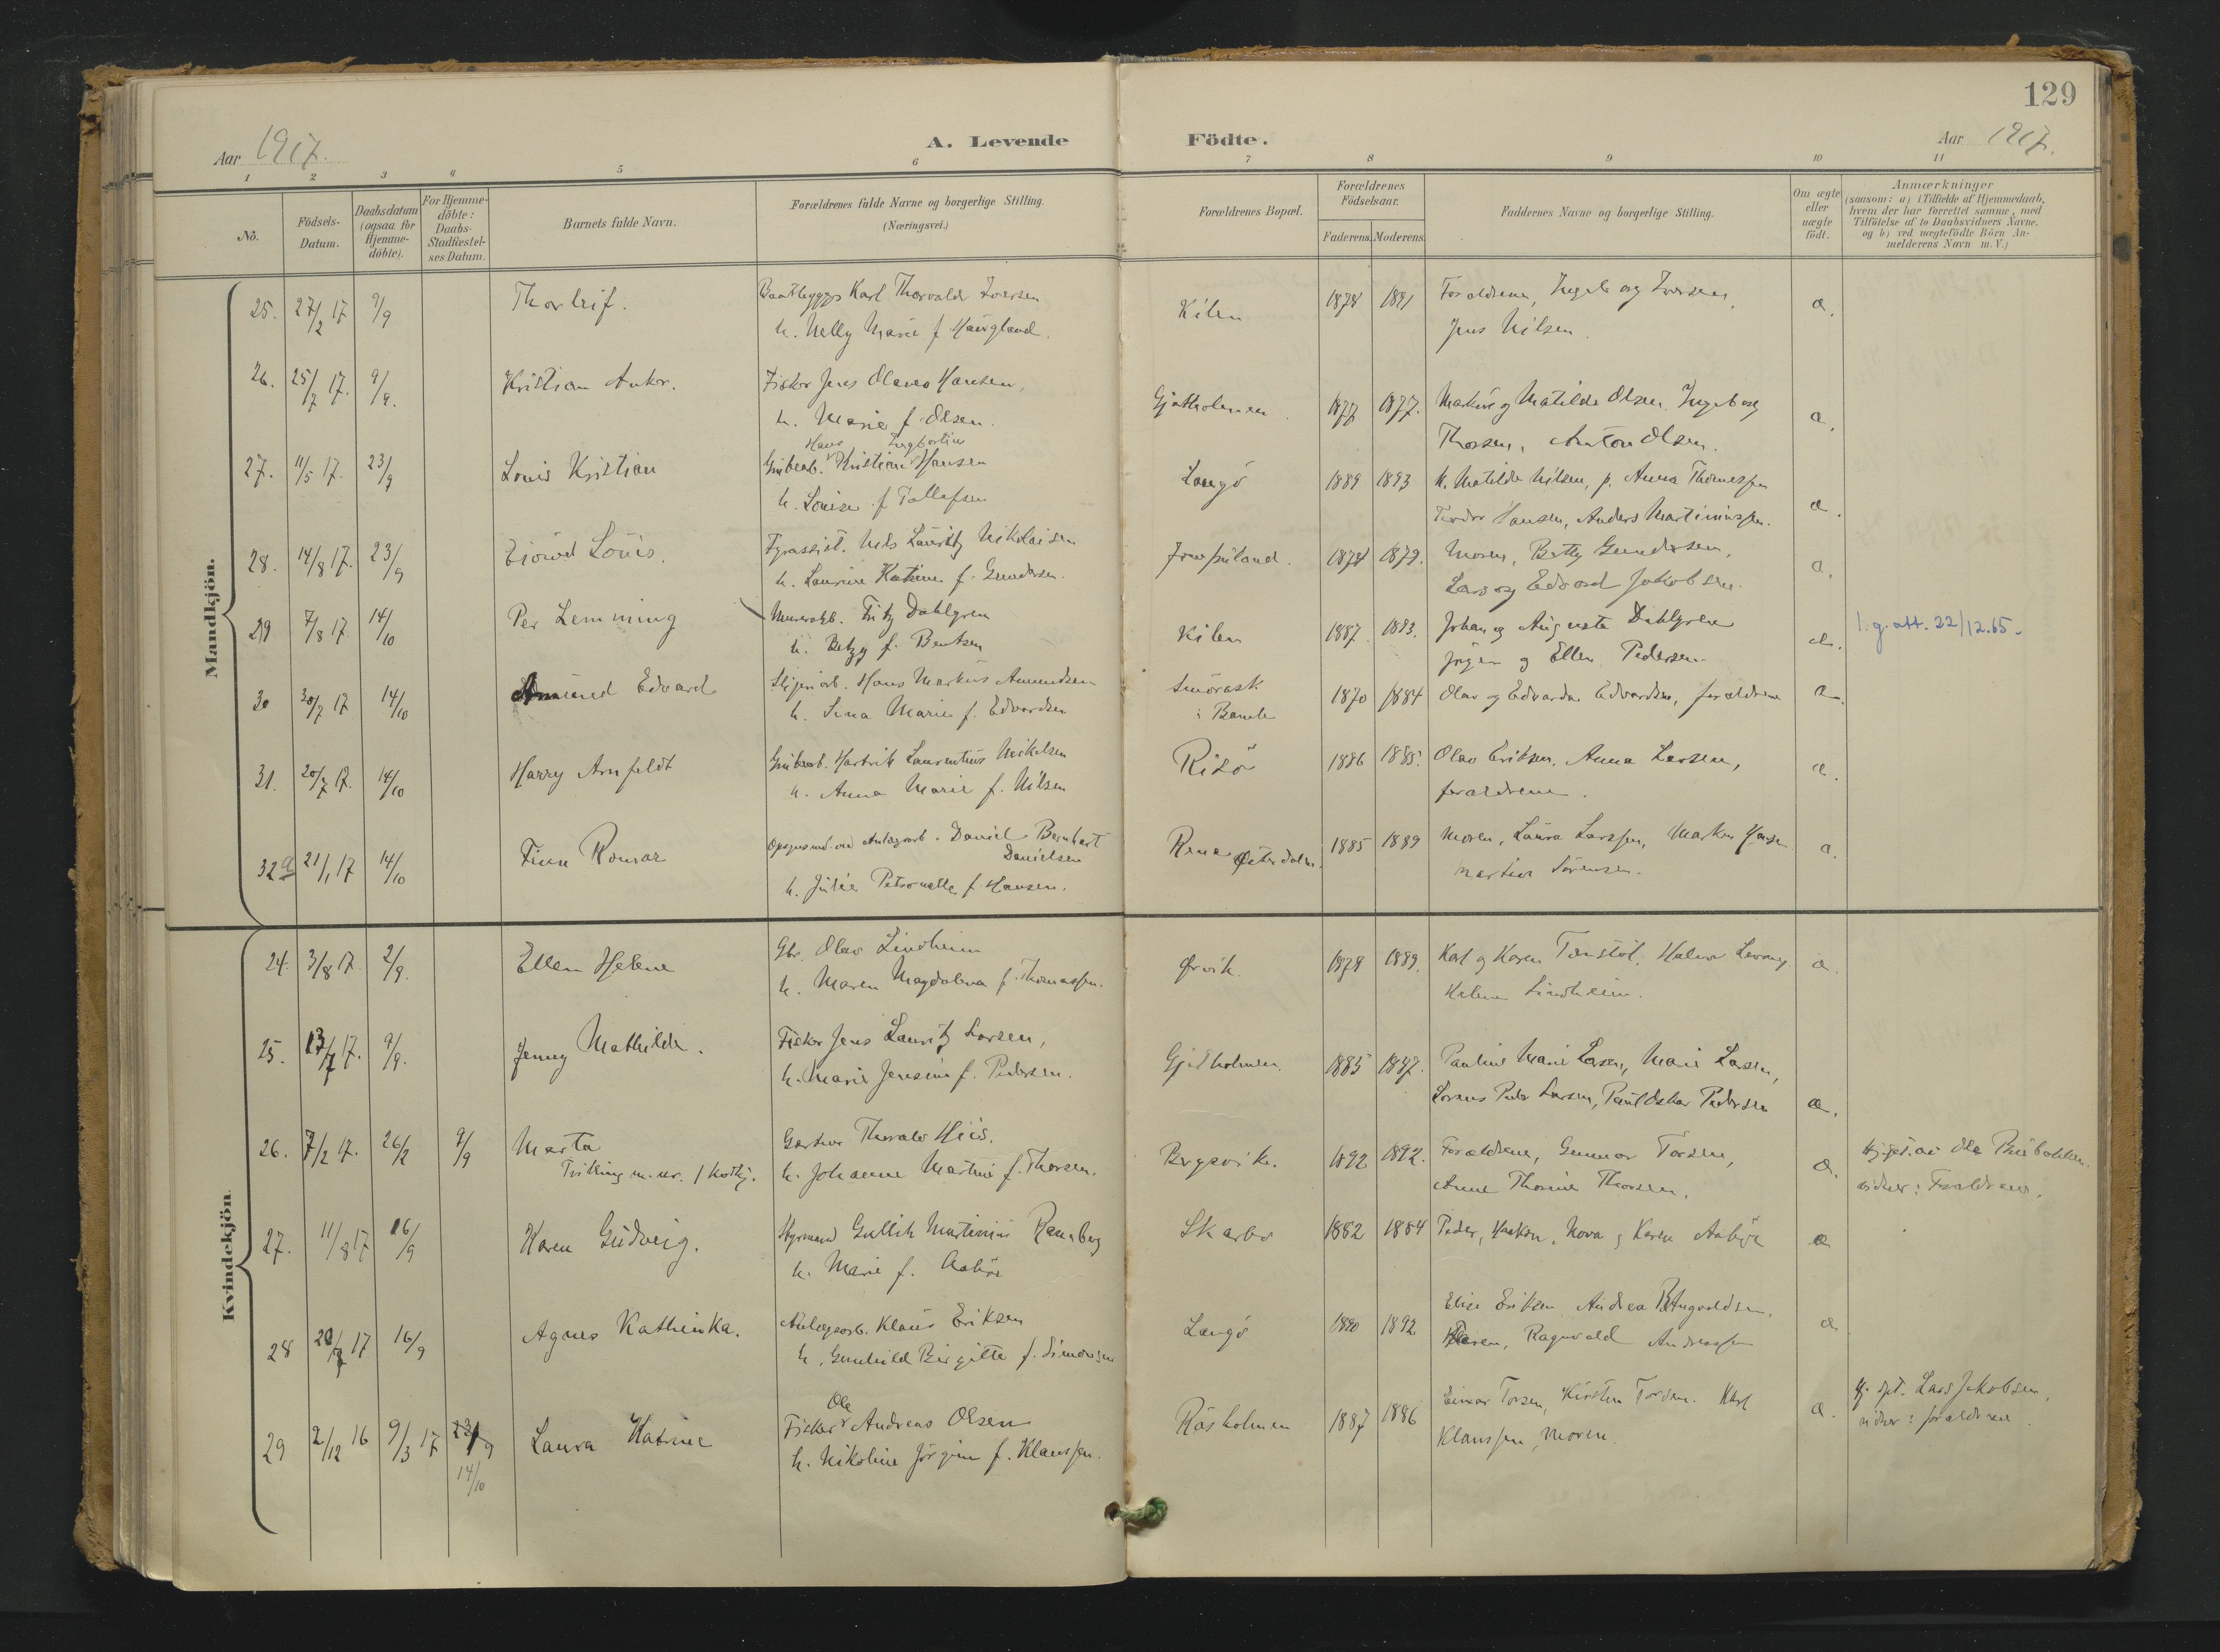 129
Aar 1917.
A. Levende Födte.
Aar 1917.
1 2 3 4 5 6 7 8 9 10 11
No.
Födsels-Datum.
Daabsdatum (ogsaa for Hjemme-döbte).
For Hjemme-döbte: Daabs-Stadfæstel-ses Datum.
Barnets fulde Navn.
Forældrenes fulde Navne og borgerlige Stilling.
(Næringsvei.)
Forældrenes Bopæl.
Forældrenes Födselsaar.
Faderens. Moderens.
Faddernes Navne og borgerlige Stilling.
Om ægte eller uægte födt.
Anmærkninger
(saasom: a) i Tilfælde af Hjemmedaab,
hvem der har forrettet samme, med
Tilföielse af to Daabsvidners Navne.
og b) ved uægtefödte Börn An-
melderens Navn m. V.)
Mandkjön.
25. 27/2 17 9/9 Thorleif. Karl Thorvald Iversen Kilen 1878 1891 Forældrene, Ingeborg Iversen, æ.
h. Nelly Marie f. Haugland. Jens Nilsen.
26. 25/7 17. 9/9. Kristian Anker. Fisker Jens Olaves Hansen, 1877 1877. Matilde Olsen, Ingeborg æ.
h. Marie f. Olsen. Thorsen, Anton Olsen.
Hans Ingbertin
27. 11/5 17. 23/9 Louis Kristian Grubearb. Kristian Hansen Langö 1889 1893 h. Matilde Nilsen, p. Anna Thomassen æ.
h. Louise f. Tollefsen Hansen, Anders Martiniussen.
28. 14/8 17. 23/9 Louis. Fyrassist. Nils Lauritz Nikolaisen Jomfruland. 1874 1879. Moren, Betty Gundersen, æ.
h. Laurine Katrine f. Gundersen. Lars og Edvard Jakobsen.
29 7/8 17. 14/10 Per Lemming Murerarb. Fritz Dahlgren Kilen 1887 1893. Johan og Augusta Dahlgren æ. l.g. att. 22/12.65.
h. Betzy f. Bentsen Jörgen og Ellen Pedersen
30 30/7 17 14/10 Amund Edvard Hans Markus Amundsen i Bamle 1870 1884 Olav og Edvarda Edvardsen, forældrene æ.
h. Marie f. Edvardsen
31. 20/7 17. 14/10 Harry Arnfeldt Grubearb. Hartvik Laurentius Mikelsen Risö 1886 1885. Olav Eriksen, Anna Larsen, æ.
h. Anna Marie f. Nilsen forældrene.
32a 21/1 17 14/10 Finn Ronvar Daniel Bernhart Danielsen Rena Österdalen. 1885 1889 Moren, Laura Larssen, Hansen æ.
h. Julie Petronelle f. Hansen. Martin Sörensen.
Kvindekjön.
24. 3/8 17. 2/9. Ellen Helene Gbr. Olav Lindheim Ørvik. 1878 1889. Karl og Karen Tenstöl, Levang æ.
h. Maren Magdalena f. Thomassen. Helene Lindheim.
25. 13/7 17. 9/9. Jenny Mathilde. Fisker Jens Lauritz Larsen, Gjedholmen. 1885 1887. Pauline Marie Larsen, Marie Larsen,
h. Marie Jensine f. Pedersen. Peder Larsen, Paul Oskar Pedersen æ.
26. 7/2 17. 26/2 9/9 Marta Gartner Thorvald Bergsvik. 1892 1892. Forældrene, Gunnar Torsen, æ.
Tvilling m. nr. h. Johanne Martine f. Thorsen. Anne Thomine Thorsen. vidner: Forældrene.
27. 11/8 17 16/9 Karen Gudveig. Styrmand Gullik Martinius Ramberg Skarbo 1882 1884 Peder, Haakon, Nora og Karen Aabö æ
h. Marie f. Aabö
28 20/7 17 16/9 Agnes Kathinka. Anlægsarb. Klaus Eriksen Langö 1890 1892 Elise Eriksen, Andrea æ
h. Gunhild Birgitte f. Simonsen Ragnvald Andreassen
Ole
29 2/12 16 9/3 17 23/9 Laura Katrine Fisker Andreas Olsen Råsholmen 1887 1886 Einar Torsen, Kirsten Torsen. Karl æ. Hj. dpt. Lars Jakobsen,
14/10 h. Nikoline Jörgine f. Klaussen. Klaussen, Moren vidner: forældrene.